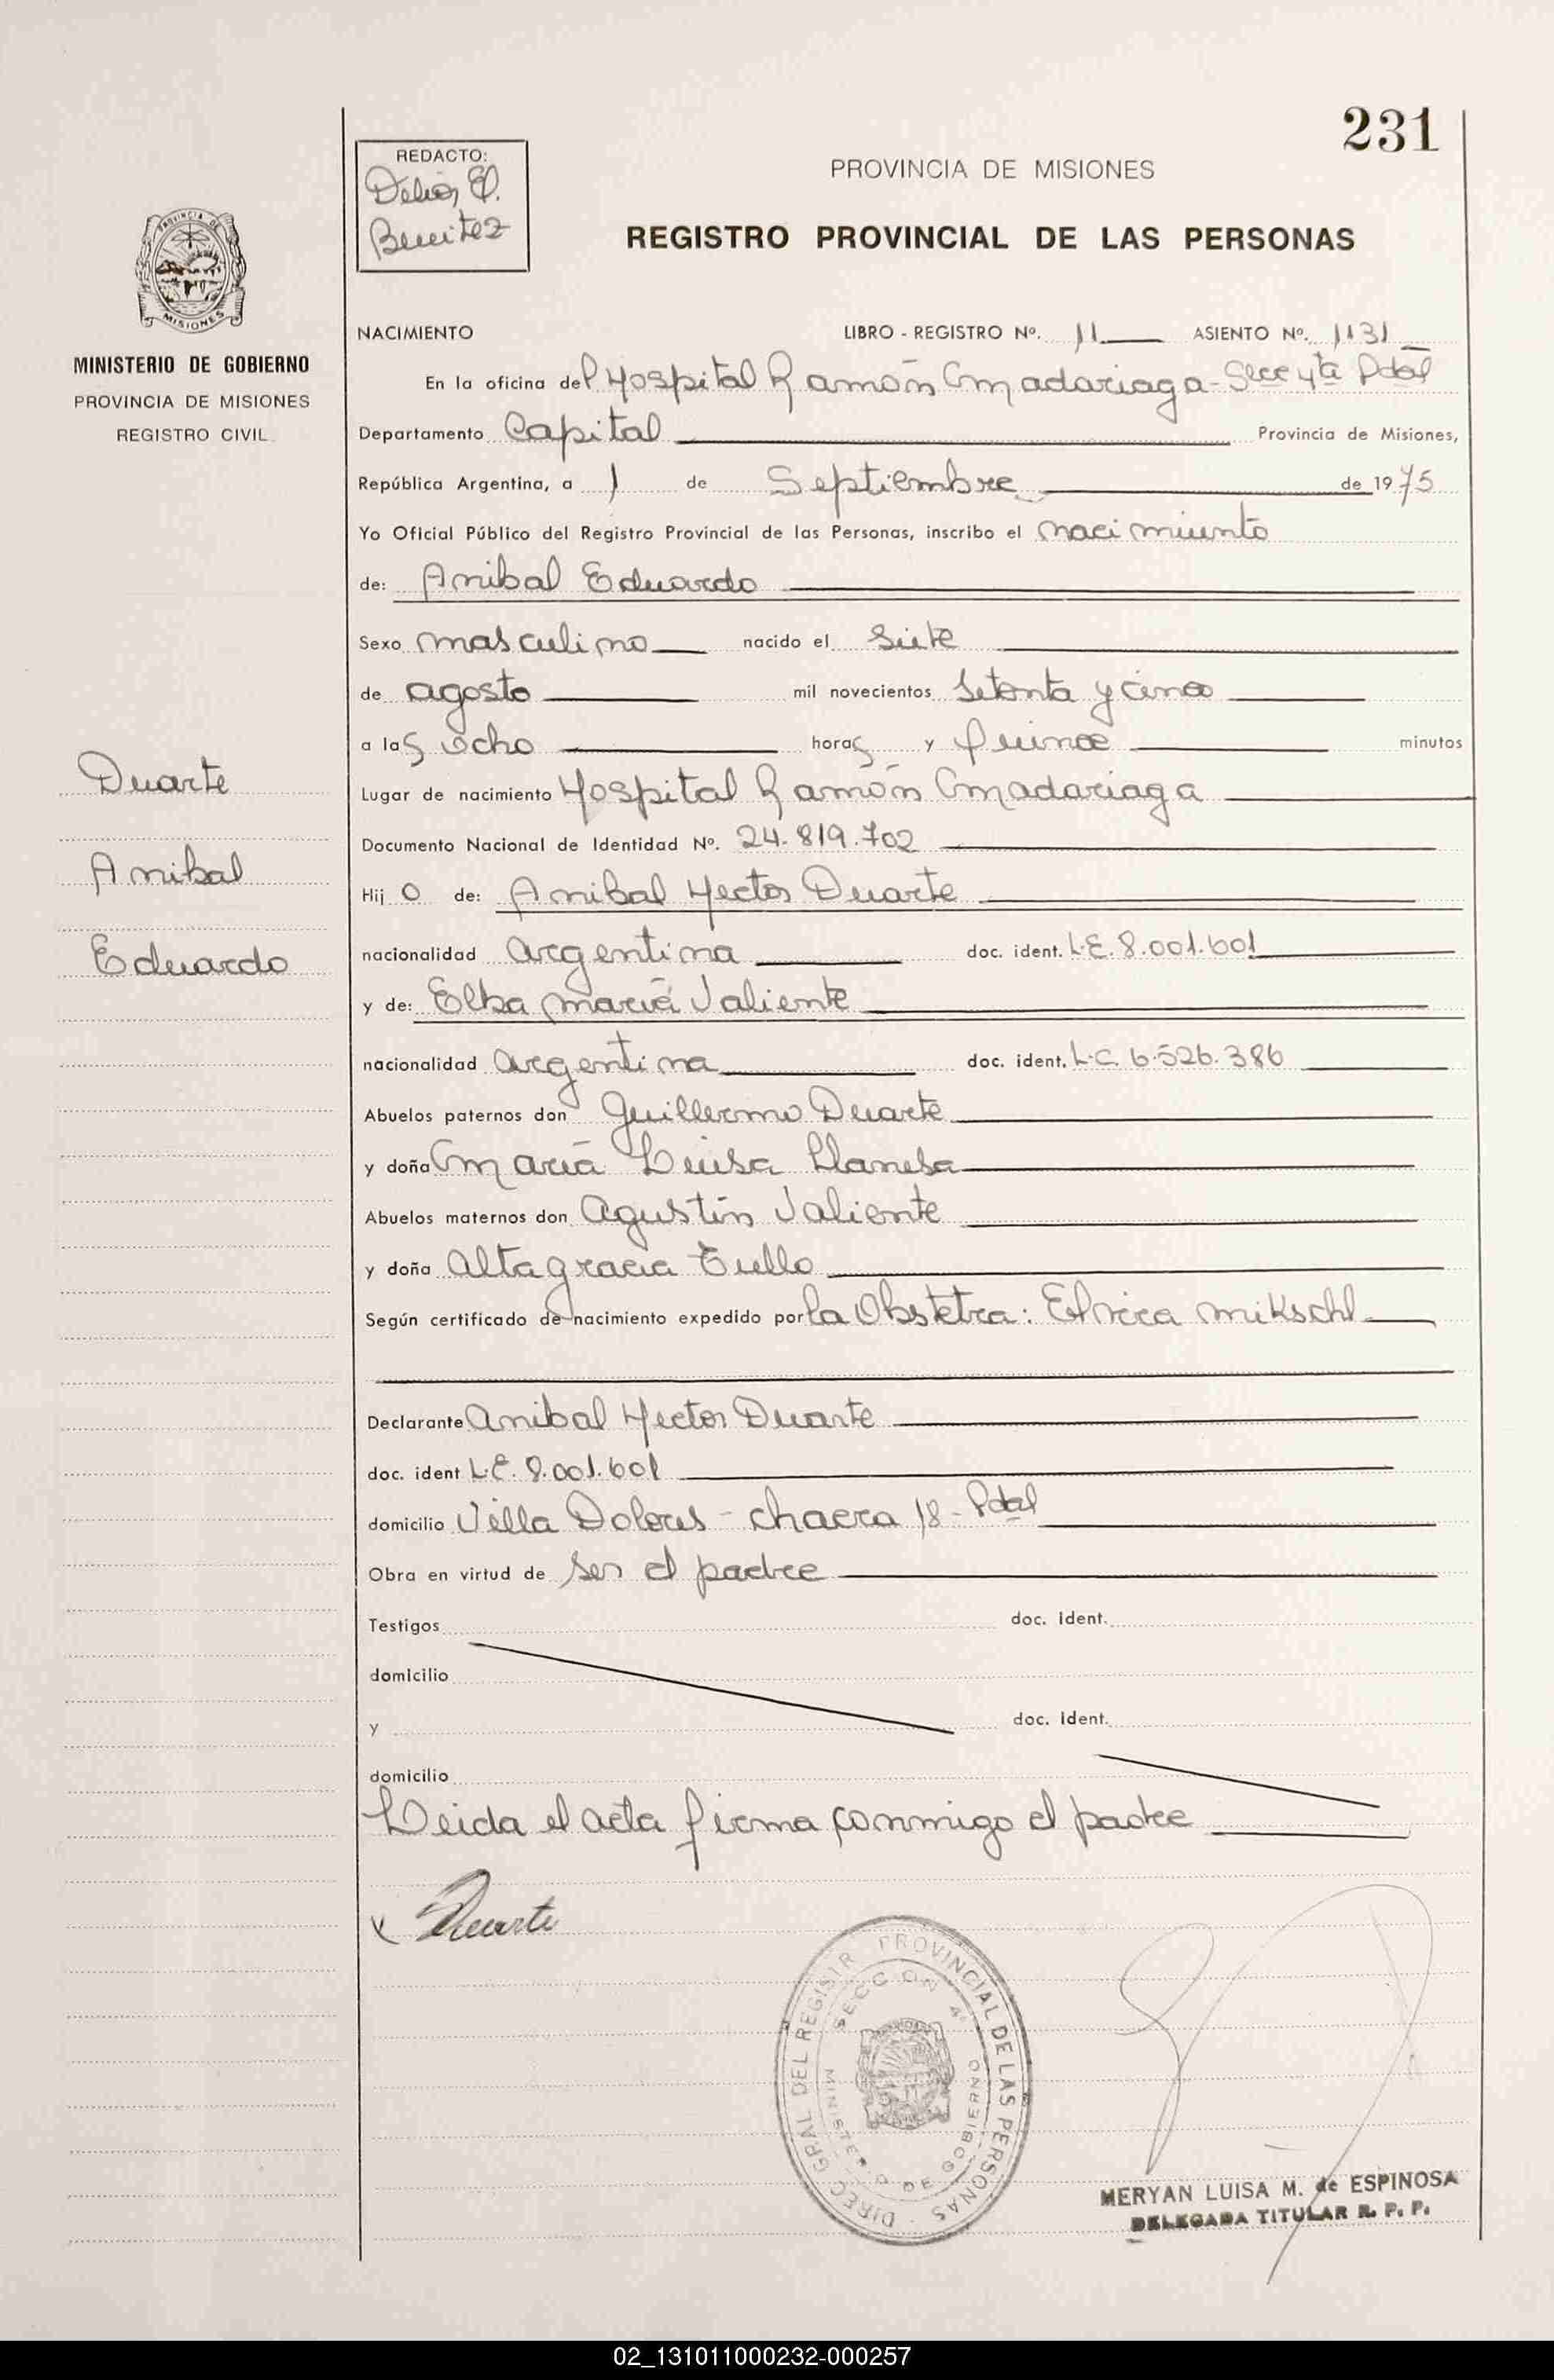 231
REDACTO:
Delia E.
Benitez
PROVINCIA DE MISIONES
REGISTRO PROVINCIAL DE LAS PERSONAS
PROVINCIA DE
MISIONES
MINISTERIO DE GOBIERNO
PROVINCIA DE MISIONES
REGISTRO CIVIL
Duarte
Anibal
Eduardo
NACIMIENTO LIBRO - REGISTRO Nº. 11 ASIENTO Nº. 1131
En la oficina del Hospital Ramón Madariaga - Secc 4ta Pdas
Departamento Capital Provincia de Misiones,
República Argentina, a 1 de Septiembre de 1975
Yo Oficial Público del Registro Provincial de las Personas, inscribo el nacimiento
de: Anibal Eduardo
Sexo masculino nacido el siete
de agosto mil novecientos setenta y cinco
a las ocho horas y quince minutos
Lugar de nacimiento Hospital Ramón Madariaga
Documento Nacional de Identidad Nº. 24.819.702
Hijo de: Anibal Hector Duarte
nacionalidad argentina doc. ident. L.E. 8.001.601
y de: Elba maria Valiente
nacionalidad argentina doc. ident. L.C. 6.526.386
Abuelos paternos don Guillermo Duarte
y doña Maria Luisa Llanesa
Abuelos maternos don Agustin Valiente
y doña Altagracia Tullo
Según certificado de nacimiento expedido por la Obstetra: Elvira Mikschl
Declarante Anibal Hector Duarte
doc. ident L.E. 8.001.601
domicilio Villa Dolores - chacra 18 - Pdas
Obra en virtud de ser el padre
Testigos doc. ident.
domicilio
y doc. ident.
domicilio
Leida el acta firma conmigo el padre
x Duarte
DIREC GRAL DEL REGISTR PROVINCIAL DE LAS PERSONAS
SECCION 4ª
MINISTERIO DE GOBIERNO
MERYAN LUISA M. de ESPINOSA
DELEGADA TITULAR R. P. P.
02_131011000232-000257